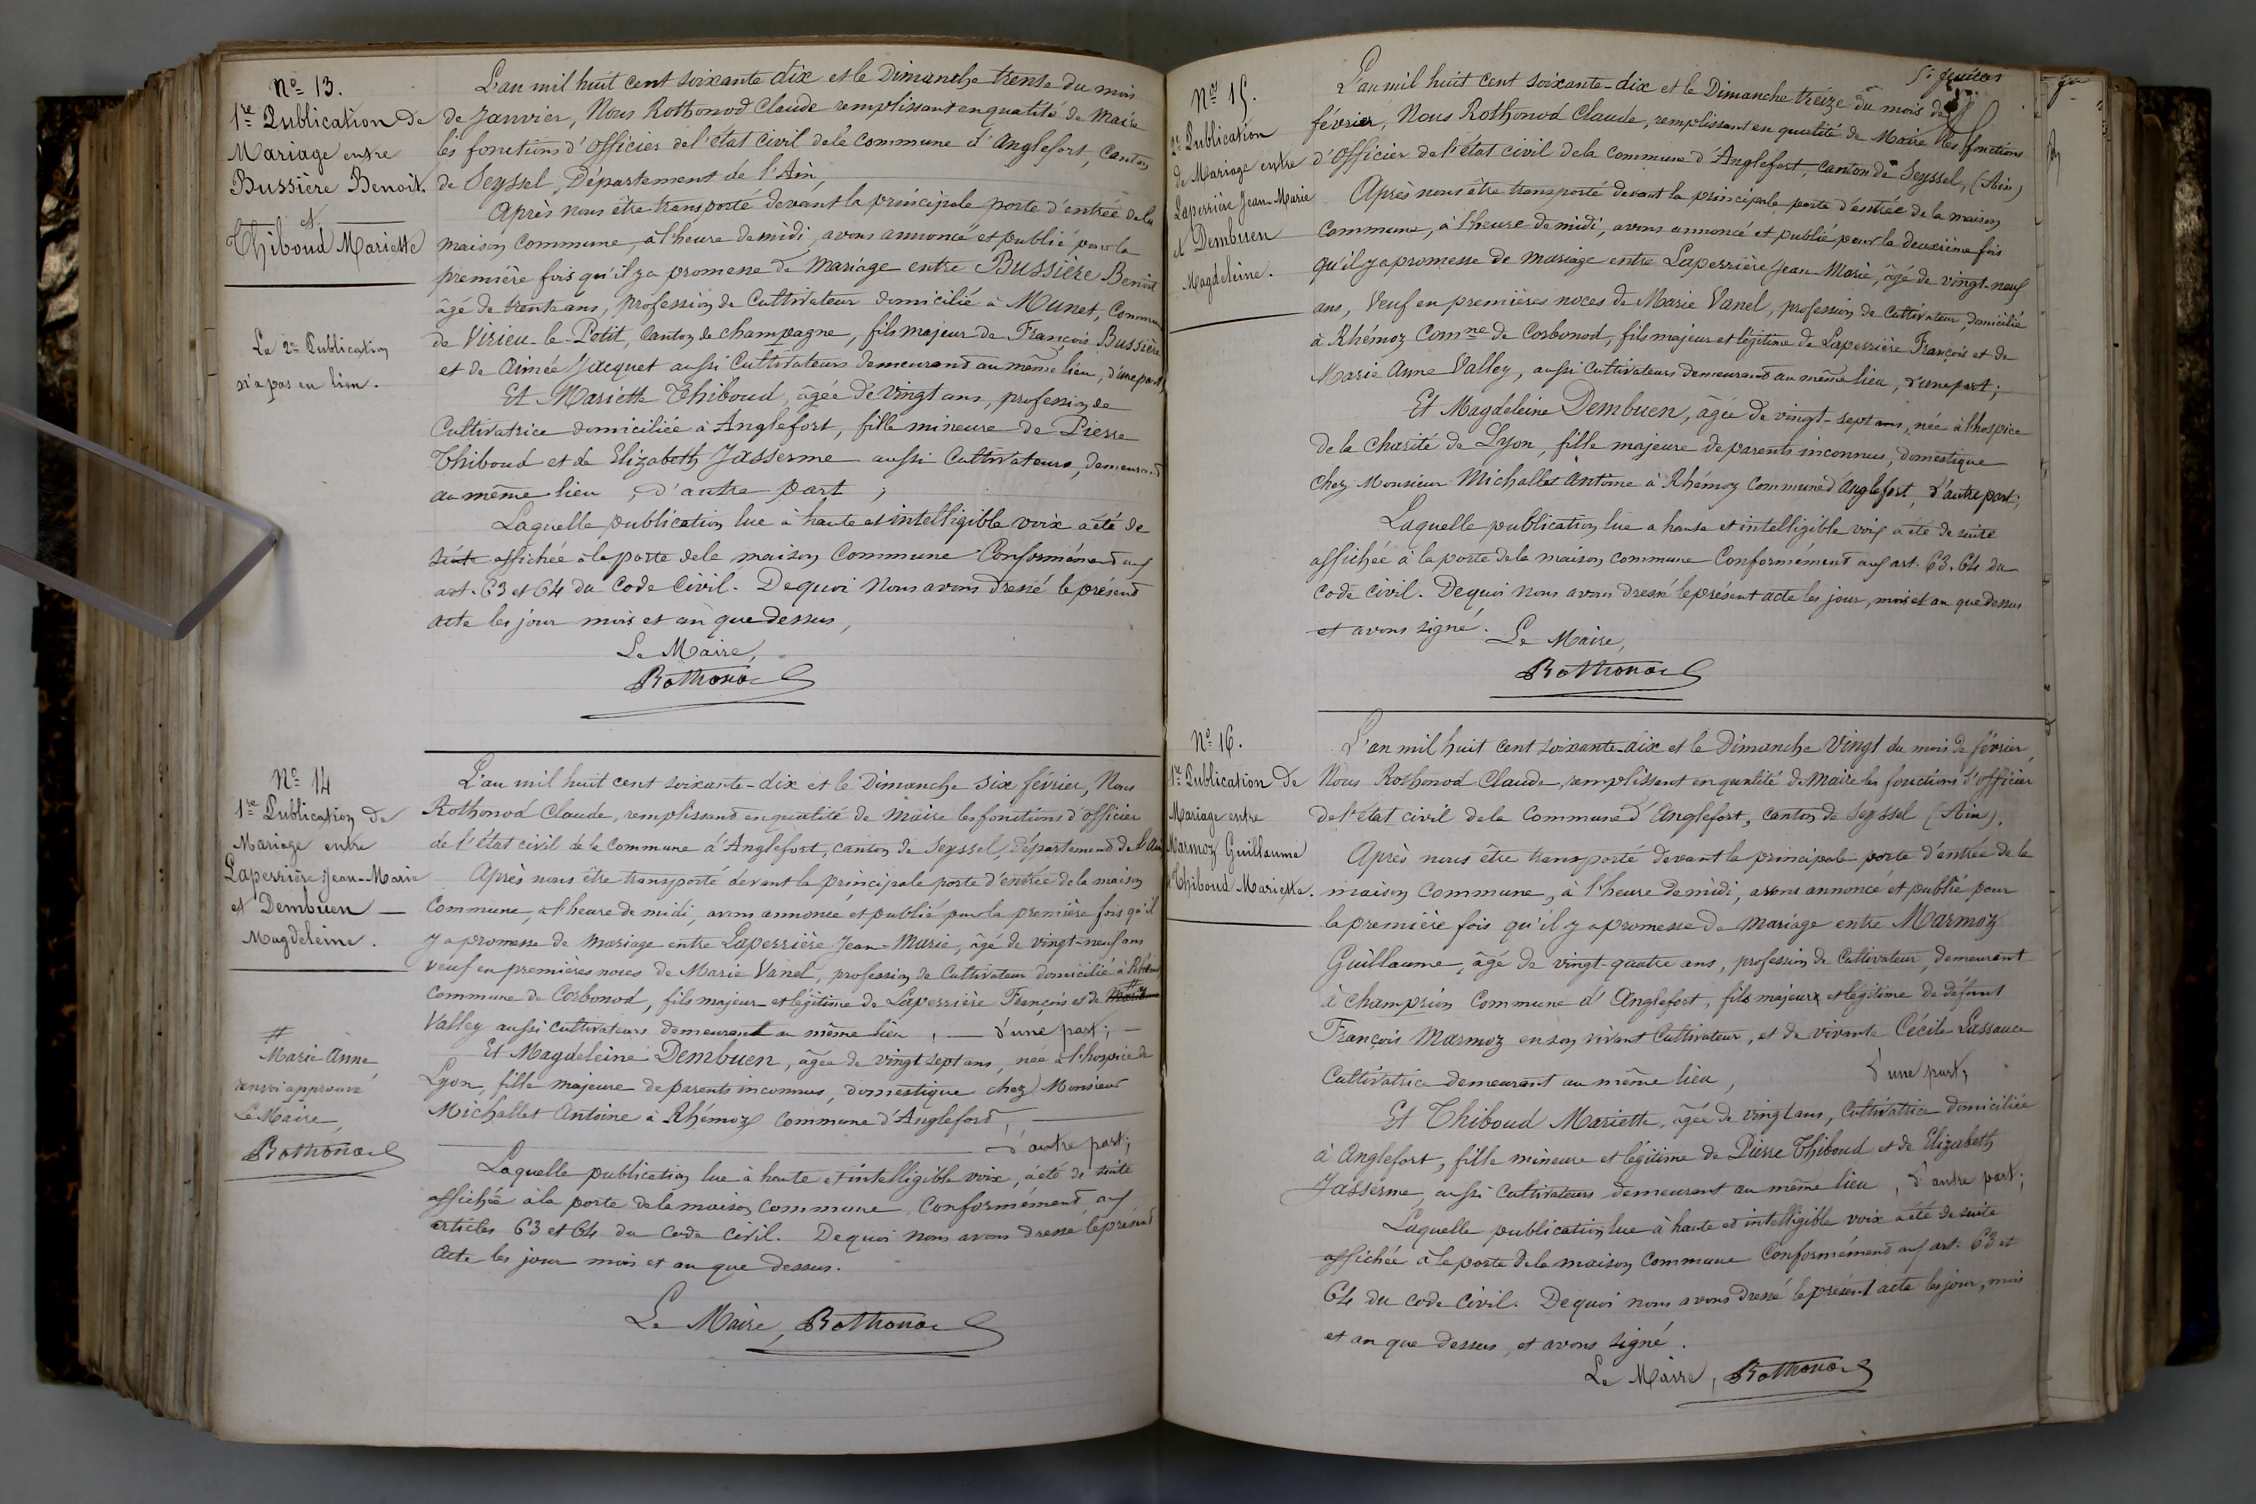 Nº 13.
1re Publication de
Mariage entre
Bussière Benoit
et
Thiboud Mariette
La 2e Publication
n'a pas eu lieu.
L'an mil huit cent soixante dix et le Dimanche trente du mois
de Janvier, Nous Rothonod Claude remplissant en qualité de Maire
les fonctions d'Officier de l'état civil de la Commune d'Anglefort, Canton
de Seyssel, Département de l'Ain,
Après nous être transporté devant la principale porte d'entrée de la
maison commune, à l'heure de midi, avons annoncé et publié pour la
première fois qu'il y a promesse de Mariage entre Bussière Benoit
âgé de trente ans, profession de Cultivateur domicilié à Munet, Commune
de Virieu-le-Petit, Canton de Champagne, fils majeur de François Bussière
et de Aimée Jacquet aussi Cultivateurs demeurand au même lieu, d'une part,
Et Mariette Thiboud, âgée de vingt ans, profession de
Cultivatrice domiciliée à Anglefort, fille mineure de Pierre
Thiboud et de Elizabeth Jasserme aussi Cultivateurs, demeurand
au même lieu, d'autre part,
Laquelle publication lue à haute et intelligible voix a été de
suite affichée à la porte de la maison Commune Conformément aux
art. 63 et 64 du Code Civil. De quoi Nous avons dressé le présend
acte les jour mois et an que dessus,
Le Maire,
Rothonod
Nº 14
1re Publication de
Mariage entre
Laperrière Jean-Marie
et Dembuen
Magdeleine.
#
Marie Anne
renvoi approuvé
Le Maire,
Rothonod
L'an mil huit cent soixante-dix et le Dimanche six février, Nous
Rothonod Claude, remplissand en qualité de Maire les fonctions d'officier
de l'état civil de la Commune d'Anglefort, canton de Seyssel, département de l'Ain
Après nous être transporté devant la principale porte d'entrée de la maison
Commune, à l'heure de midi, avons annoncé et publié pour la première fois qu'il
y a promesse de mariage entre Laperrière Jean-Marie, âgé de vingt-neuf ans
veuf en premières noces de Marie Vanel, profession de Cultivateur domicilié à
Commune de Corbonod, fils majeur et légitime de Laperrière François et de #
Valley aussi cultivateurs demeurant au même lieu, d'une part;
Et Magdeleine Dembuen, âgée de vingt sept ans, née à l'hospice de
Lyon, fille majeure de parents inconnus, domestique chez Monsieur
Michallet Antoine à Rhémoz Commune d'Angleford,
d'autre part;
Laquelle publication lue à haute et intelligible voix, a été de suite
affichée à la porte de la maison commune, conformément aux
articles 63 et 64 du Code Civil. De quoi nous avons dressé le présend
Acte les jour mois et an que dessus.
Le Maire, Rothonod
Nº 15.
2e Publication
de Mariage entre
Laperrière Jean-Marie
et Dembuen
Magdeleine.
L'an mil huit cent soixante-dix et le Dimanche treize du mois de
février, Nous Rothonod Claude, remplissant en qualité de Maire les fonctions
d'Officier de l'état civil de la Commune d'Anglefort, canton de Seyssel, (Ain)
Après nous être transporté devant la principale porte d'entrée de la maison
Commune, à l'heure de midi, avons annoncé et publié pour la deuxième fois
qu'il y a promesse de mariage entre Laperrière Jean-Marie, âgé de vingt-neuf
ans, Veuf en premières noces de Marie Vanel, profession de Cultivateur, domicilié
à Rhémoz Comne de Corbonod, fils majeur et légitime de Laperrière François et de
Marie Anne Valley, aussi Cultivateurs demeurand au même lieu, d'une part;
Et Magdeleine Dembuen, âgée de vingt-sept ans, née à l'hospice
de la charité de Lyon, fille majeure de parents inconnus, domestique
chez Monsieur Michallet Antoine à Rhémoz Commune d'Anglefort, d'autre part;
Laquelle publication lue a haute et intelligible voix a été de suite
affichée à la porte de la maison commune Conformément aux art. 63. 64 du
Code Civil. De quoi nous avons dressé le présent acte les jour, mois et an que dessus
et avons signé.
Le Maire,
Rothonod
Nº 16.
1re Publication de
Mariage entre
Marmoz Guillaume
& Thiboud Mariette.
L'an mil huit cent soixante-dix et le Dimanche Vingt du mois de février
Nous Rothonod Claude, remplissant en qualité de Maire les fonctions d'officier
de l'état civil de la Commune d'Anglefort, canton de Seyssel (Ain).
Après nous être transporté devant la principale porte d'entrée de la
maison Commune, à l'heure de midi, avons annoncé et publié pour
la première fois qu'il y a promesse de mariage entre Marmoz
Guillaume, âgé de vingt-quatre ans, profession de Cultivateur, demeurant
à Champrion Commune d'Anglefort, fils majeur et légitime de défunt
François Marmoz en son vivant Cultivateur, et de vivante Cécile Lassauce
Cultivatrice demeurant au même lieu, d'une part;
Et Thiboud Mariette, âgée de vingt ans, Cultivatrice domiciliée
à Anglefort, fille mineure et légitime de Pierre Thiboud et de Elizabeth
Jasserme, aussi Cultivateurs demeurant au même lieu, d'autre part;
Laquelle publication lue à haute et intelligible voix a été de suite
affichée à la porte de la maison Commune Conformément aux art. 63 et
64 du Code Civil. De quoi nous avons dressé le présent acte les jour, mois
et an que dessus, et avons signé.
Le Maire, Rothonod